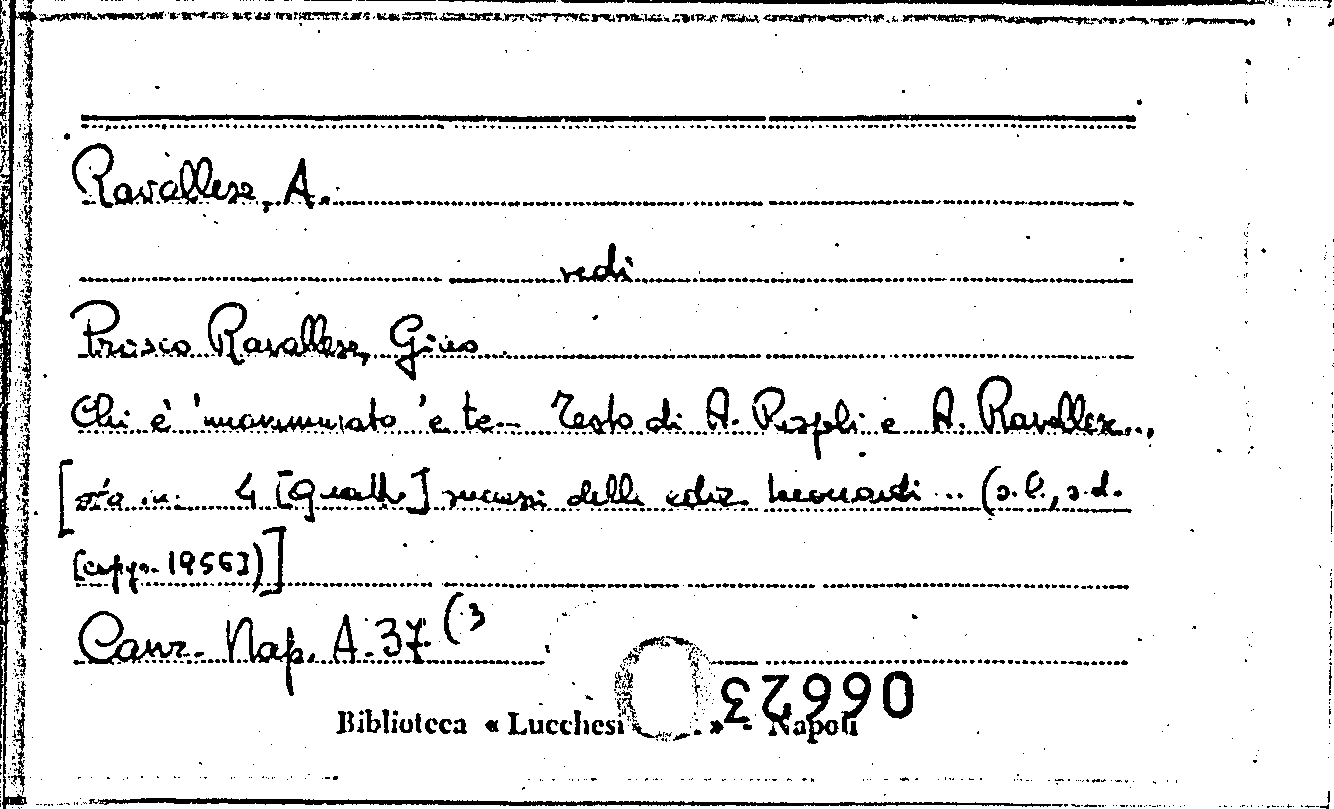 Ravallese, A.
vedi
Prosco Ravallese, Gino
Chi è 'nnammurato 'e te... Testo di A. Pugliese e A. Ravallese...,
[sta in: 4 [Quattro] successi delle ediz. Leonardi ... (s.l., s.d.
[copyr. 1956])]
Canz. Nap. A.37 (3
Biblioteca « Lucchesi » - Napoli
06623